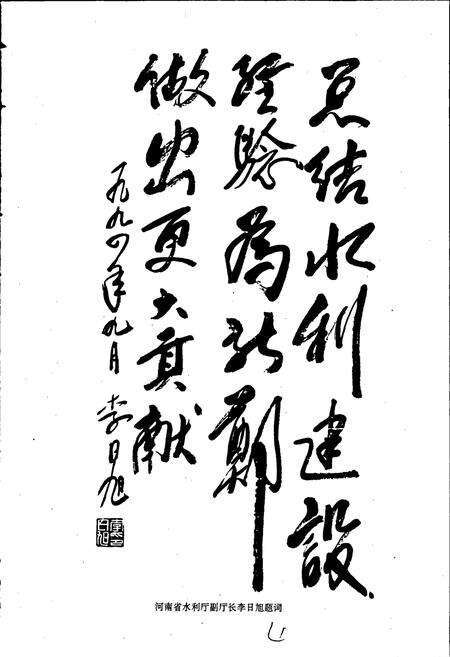 总结水利建设
经验为新郑
做出更大贡献
一九九四年九月 李日旭
河南省水利厅副厅长李日旭题词